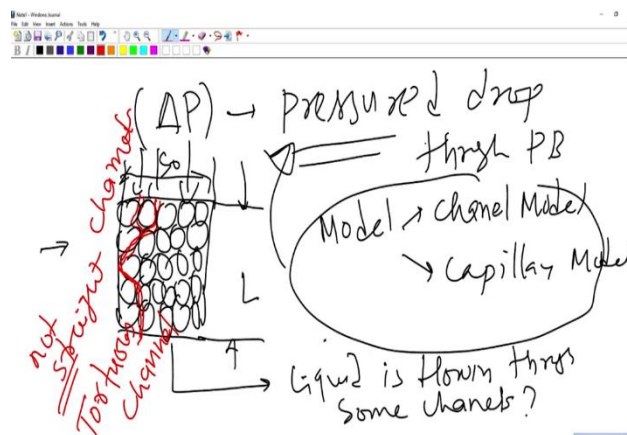 Note1 - Windows Journal
File Edit View Insert Actions Tools Help
(ΔP) → pressured drop
throgh PB
So
Model → Chanel Model
↘ Capillay Model
L
A
→ Liquid is flowin throgs
Some chanels?
not straight channel
Tortuous
channel